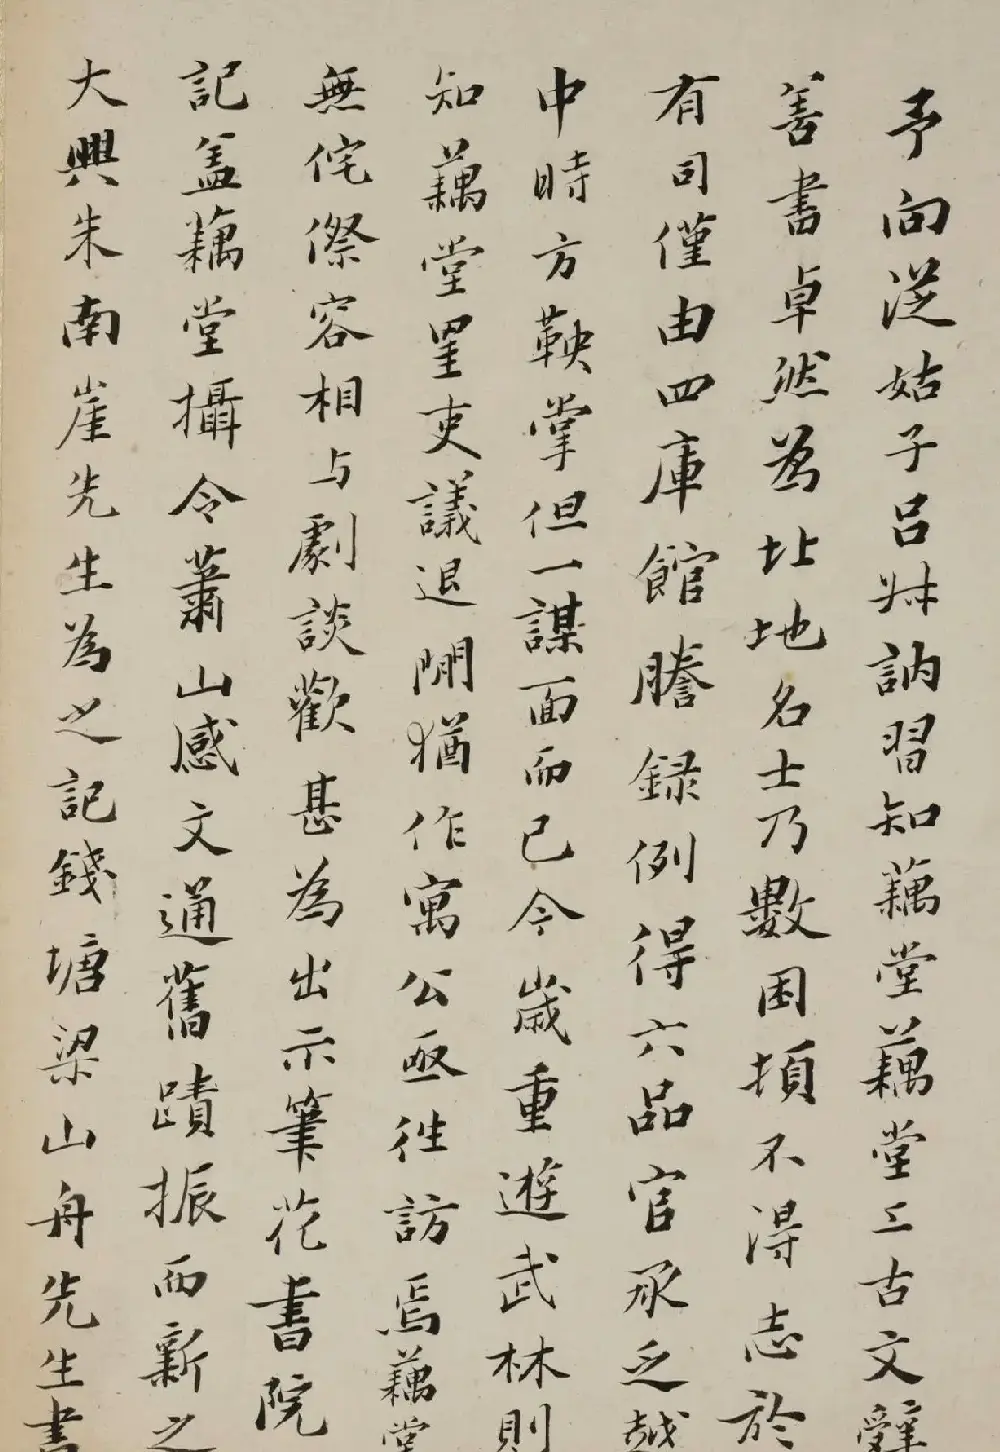 予向從姑子呂牀訥習知藕堂藕堂工古文辭
善書卓然為北地名士乃數困頓不得志於
有司僅由四庫館謄錄例得六品官承乏越
中時方鞅掌但一謀面而已今歲重遊武林則
知藕堂罣吏議退閒猶作寓公亟往訪焉藕堂
無侘傺容相与劇談歡甚為出示筆花書院
記盖藕堂攝令蕭山感文通舊蹟振而新之
大興朱南崖先生為之記錢塘梁山舟先生書